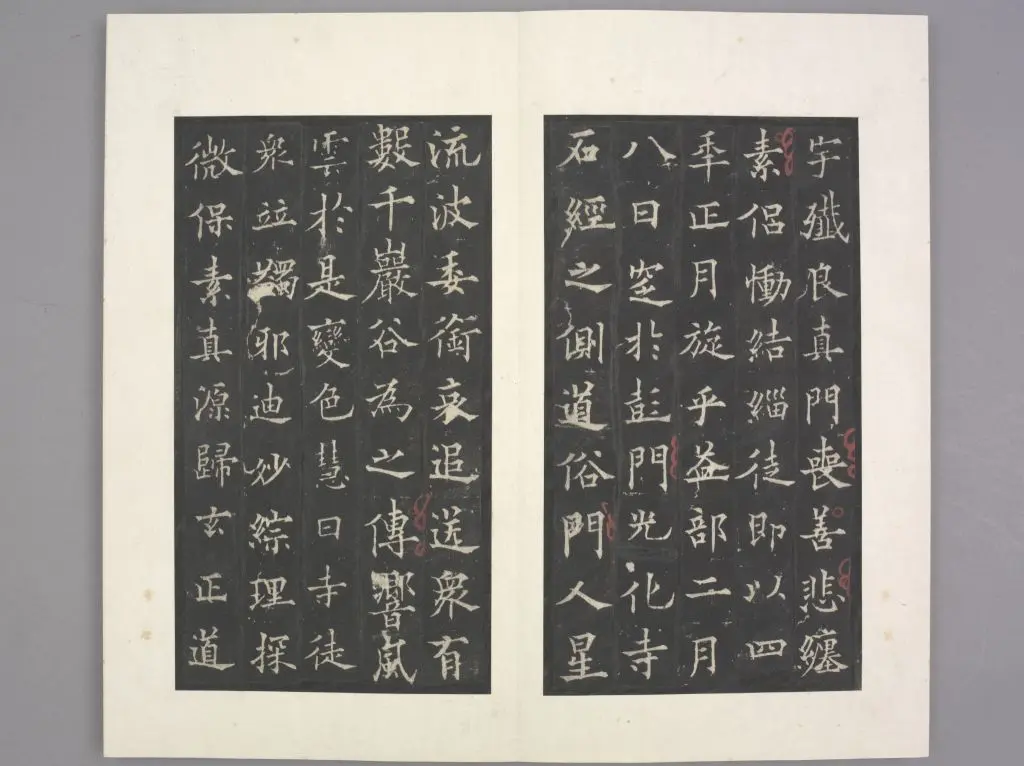 宇殲良真門喪善悲纏
素侶慟結緇徒即以四
年正月旋乎益部二月
八日窆於彭門光化寺
石經之側道俗門人星
流波委銜哀追送衆有
數千巖谷為之傳響風
雲於是變色慧日寺徒
衆竝蠲邪迪妙綜理探
微保素真源歸玄正道